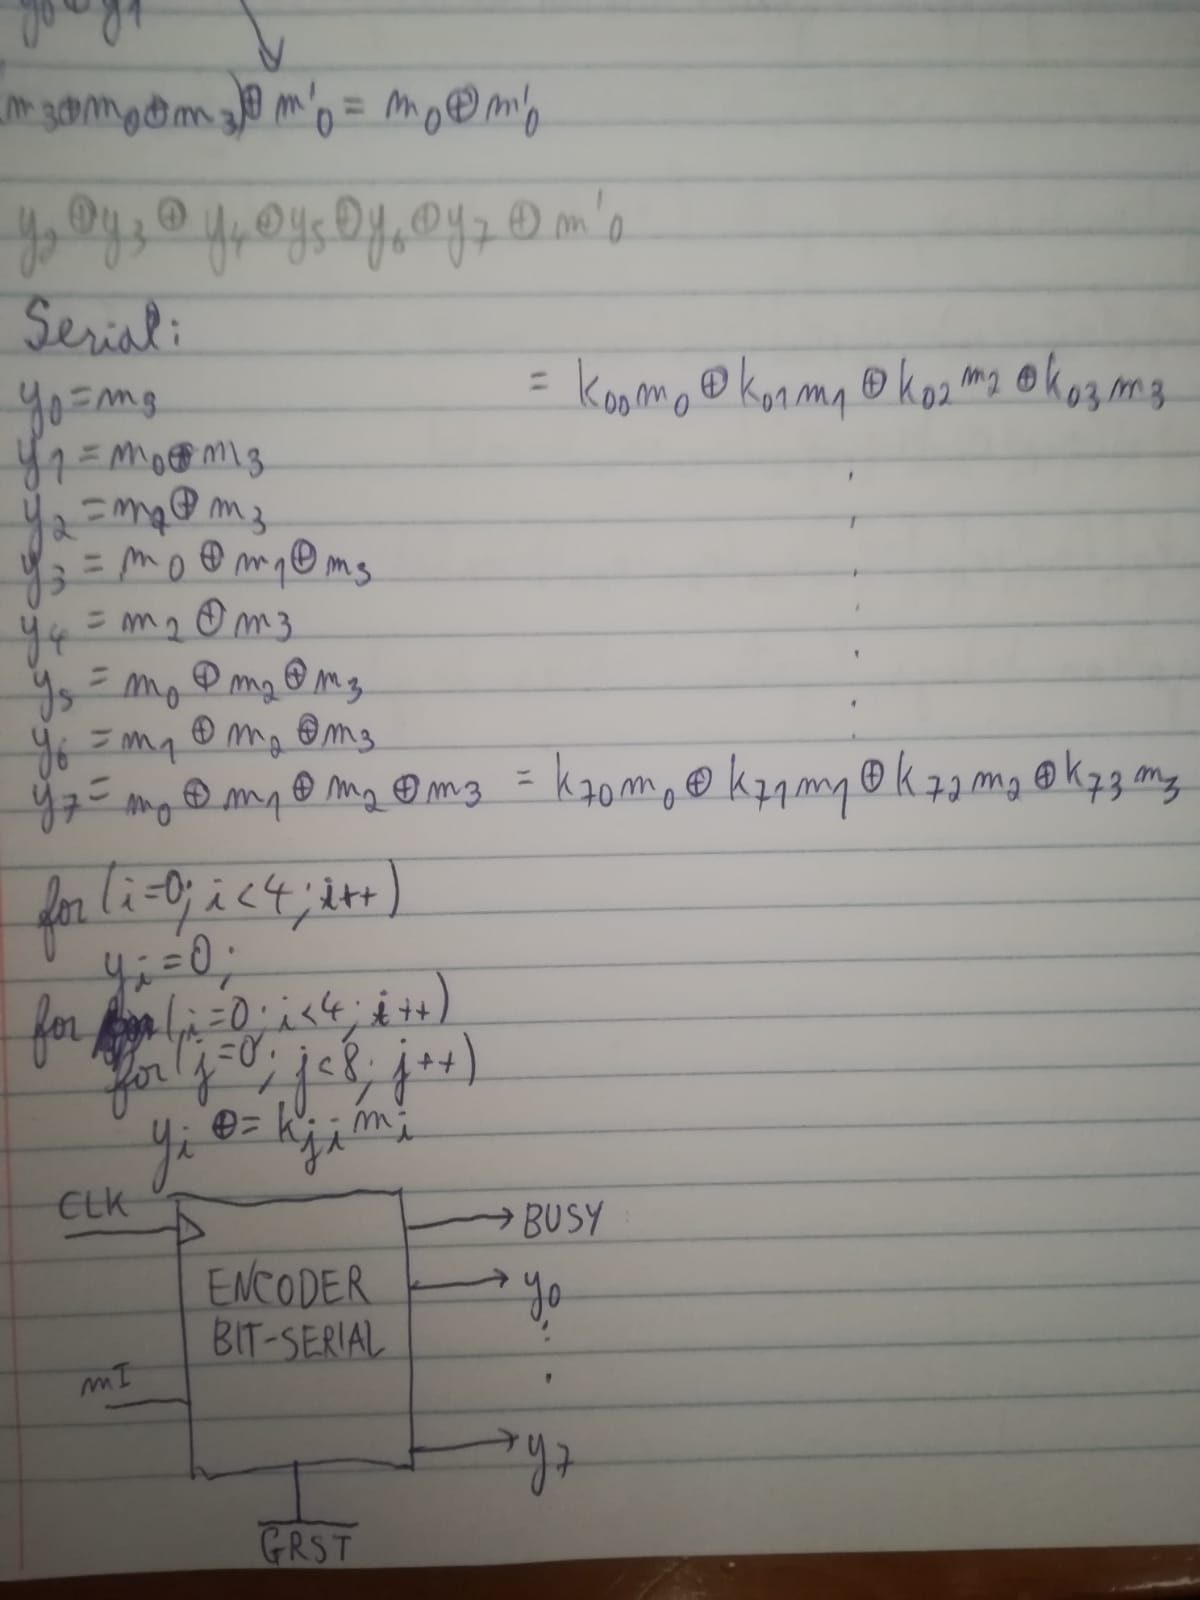 y₀⊕y₁
m₃⊕m₀⊕m₃)⊕m'₀ = m₀⊕m'₀
y₂⊕y₃⊕y₄⊕y₅⊕y₆⊕y₇⊕m'₀
Serial:
y₀=m₃ = k₀₀m₀⊕k₀₁m₁⊕k₀₂m₂⊕k₀₃m₃
y₁=m₀⊕m₃
y₂=m₁⊕m₃
y₃=m₀⊕m₁⊕m₃
y₄=m₂⊕m₃
y₅=m₀⊕m₂⊕m₃
y₆=m₁⊕m₂⊕m₃
y₇=m₀⊕m₁⊕m₂⊕m₃ = k₇₀m₀⊕k₇₁m₁⊕k₇₂m₂⊕k₇₃m₃
for(i=0; i<4; i++)
yᵢ=0;
for (i=0; i<4; i++)
for(j=0; j<8; j++)
yᵢ ⊕= kⱼᵢmᵢ
CLK
BUSY
ENCODER
y₀
BIT-SERIAL
mI
y₇
G̅R̅S̅T̅